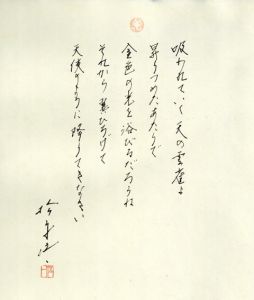 吸われていく天の雲雀よ
昇りつめたあたりで
金色の光を浴びるだろうね
それから翼ひろげて
天使のように降りてきなさい